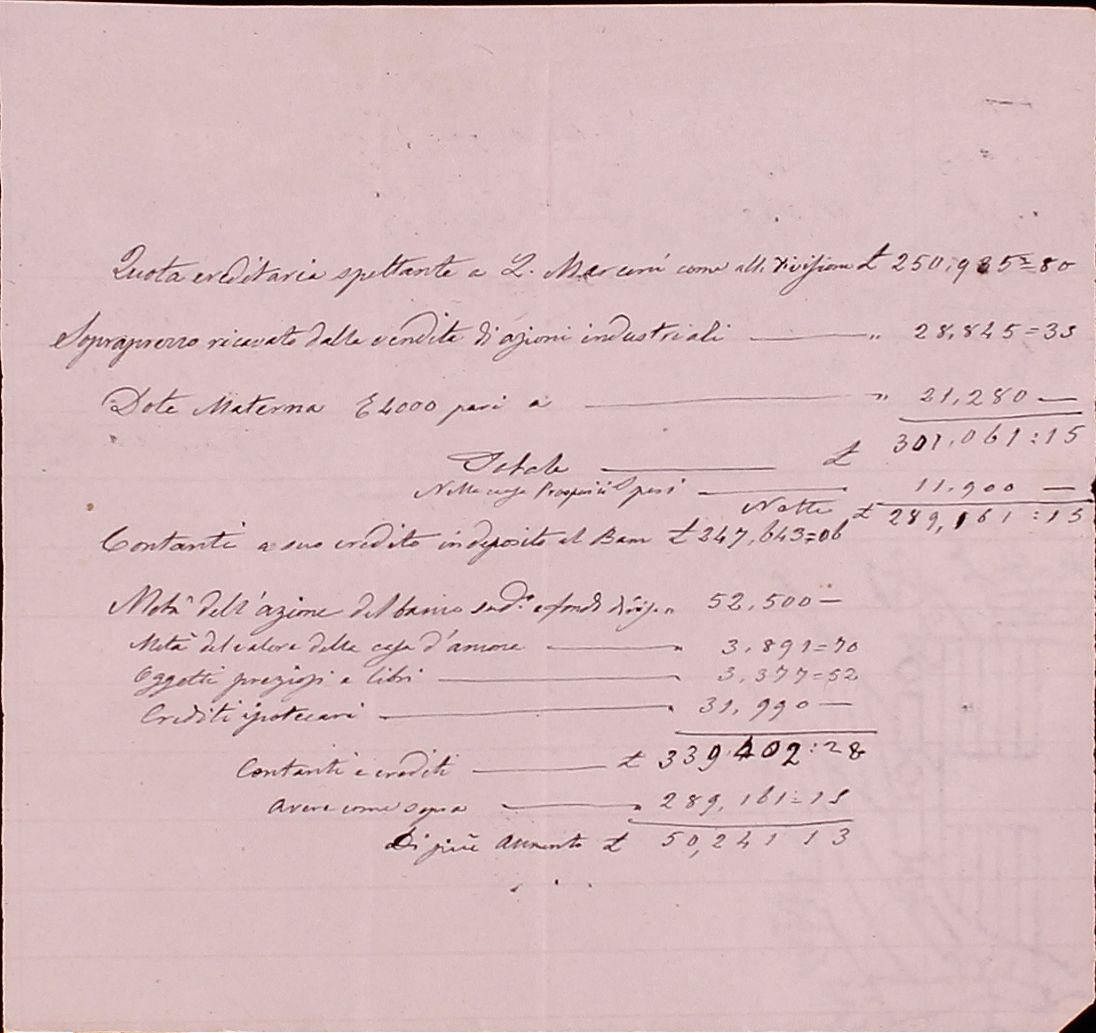 Quota ereditaria spettante a L. Marconi come alla Divisione £ 250,935=80
Sopraprezzo ricavato dalla vendita di azioni industriali " 28,845=35
Dote Materna £4000 pari a " 21,280 —
Totale £ 301,061:15
Nella casa Prosperi 11,900 —
Nette £ 289,161:15
Contanti a suo credito in deposito al Banco £ 247,643=06
Metà dell'azione del banco sud.º e fondi " 52,500 —
Metà del valore della casa d'ancona " 3,891=70
Oggetti preziosi e libri " 3,377=52
Crediti ipotecari " 31,990 —
Contanti e crediti £ 339,402:28
Avere come sopra " 289,161=15
Di più Aumento £ 50,241 13